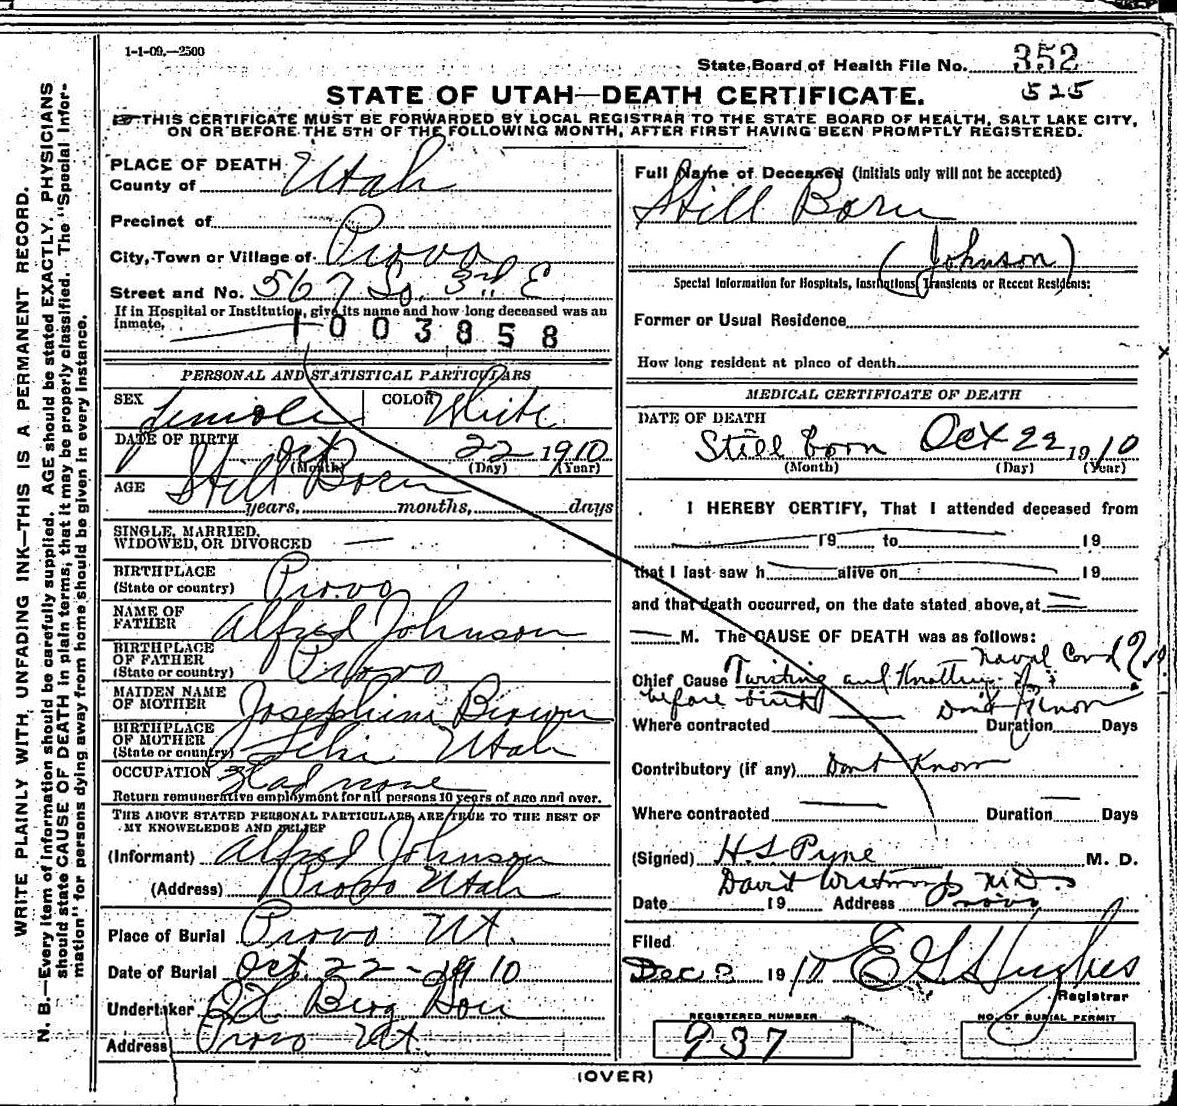 1-1-09.—2500
State Board of Health File No. 352
525
STATE OF UTAH—DEATH CERTIFICATE.
☞ THIS CERTIFICATE MUST BE FORWARDED BY LOCAL REGISTRAR TO THE STATE BOARD OF HEALTH, SALT LAKE CITY,
ON OR BEFORE THE 5TH OF THE FOLLOWING MONTH, AFTER FIRST HAVING BEEN PROMPTLY REGISTERED.
WRITE PLAINLY WITH UNFADING INK—THIS IS A PERMANENT RECORD.
N. B.—Every item of information should be carefully supplied. AGE should be stated EXACTLY. PHYSICIANS
should state CAUSE OF DEATH in plain terms, that it may be properly classified. The "Special Infor-
mation" for persons dying away from home should be given in every instance.
PLACE OF DEATH
County of Utah
Precinct of
City, Town or Village of Provo
Street and No. 567 So. 3rd E
If in Hospital or Institution, give its name and how long deceased was an
Inmate,
1003858
PERSONAL AND STATISTICAL PARTICULARS
SEX Female COLOR White
DATE OF BIRTH Oct 22 1910
(Month) (Day) (Year)
AGE Still Born
years, months, days
SINGLE, MARRIED,
WIDOWED, OR DIVORCED —
BIRTHPLACE
(State or country) Provo
NAME OF
FATHER Alfred Johnson
BIRTHPLACE
OF FATHER
(State or country) Provo
MAIDEN NAME
OF MOTHER Josephine Brown
BIRTHPLACE
OF MOTHER
(State or country) Lehi Utah
OCCUPATION Had none
Return remunerative employment for all persons 10 years of age and over.
THE ABOVE STATED PERSONAL PARTICULARS ARE TRUE TO THE BEST OF
MY KNOWLEDGE AND BELIEF
(Informant) Alfred Johnson
(Address) Provo Utah
Place of Burial Provo Ut.
Date of Burial Oct. 22 - 1910
Undertaker Berg
Address Provo Ut.
Full Name of Deceased (Initials only will not be accepted)
Still Born
(Johnson)
Special Information for Hospitals, Institutions, Transients or Recent Residents:
Former or Usual Residence
How long resident at place of death
MEDICAL CERTIFICATE OF DEATH
DATE OF DEATH
Still born Oct 22 1910
(Month) (Day) (Year)
I HEREBY CERTIFY, That I attended deceased from
19 to 19
that I last saw h alive on 19
and that death occurred, on the date stated above, at
M. The CAUSE OF DEATH was as follows:
Naval Cord
Chief Cause Twisting and Knotting of
before birth Dont Know
Where contracted — Duration Days
Contributory (if any) Dont Know
Where contracted — Duration — Days
(Signed) H S Pyne M. D.
David Westwood M.D.
Date 19 Address Provo
Filed
Dec 1910 E G Hughes
Registrar
REGISTERED NUMBER
937
NO. OF BURIAL PERMIT
(OVER)